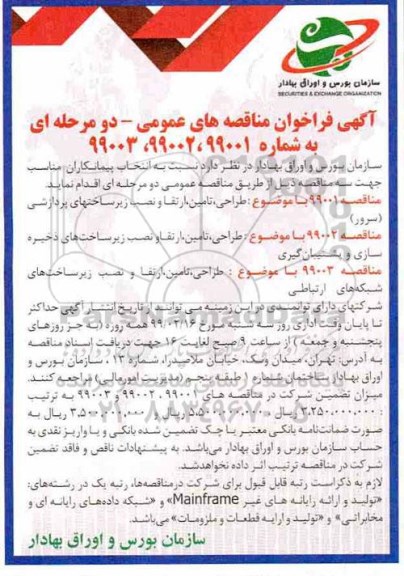 سازمان بورس و اوراق بهادار
SECURITIES & EXCHANGE ORGANIZATION
آگهی فراخوان مناقصه های عمومی - دو مرحله ای
به شماره ۹۹۰۰۱، ۹۹۰۰۲، ۹۹۰۰۳
سازمان بورس و اوراق بهادار در نظر دارد نسبت به انتخاب پیمانکاران مناسب
جهت سه مناقصه ذیل از طریق مناقصه عمومی دو مرحله ای اقدام نماید.
مناقصه ۹۹۰۰۱ با موضوع : طراحی، تامین، ارتقا و نصب زیرساختهای پردازشی
(سرور)
مناقصه ۹۹۰۰۲ با موضوع : طراحی، تامین، ارتقا و نصب زیرساخت‌های ذخیره
سازی و پشتیبان گیری
مناقصه ۹۹۰۰۳ با موضوع : طراحی، تامین، ارتقا و نصب زیرساخت‌های
شبکه‌های ارتباطی
شرکتهای دارای توانمندی در این زمینه می توانند از تاریخ انتشار آگهی حداکثر
تا پایان وقت اداری روز سه شنبه مورخ ۹۹/۰۳/۱۶ همه روزه (به جز روزهای
پنجشنبه و جمعه) از ساعت ۹ صبح لغایت ۱۶ جهت دریافت اسناد مناقصه
به آدرس: تهران، میدان ونک، خیابان ملاصدرا، شماره ۱۳، سازمان بورس و
اوراق بهادار، ساختمان شماره ۱ طبقه پنجم (مدیریت امور مالی) مراجعه کنند.
میزان تضمین شرکت در مناقصه های ۹۹۰۰۱، ۹۹۰۰۲ و ۹۹۰۰۳ به ترتیب
ریال ریال و ریال به
صورت ضمانت‌نامه بانکی معتبر یا چک تضمین شده بانکی و یا واریز نقدی به
حساب سازمان بورس و اوراق بهادار می‌باشد. به پیشنهادات ناقص و فاقد تضمین
شرکت در مناقصه ترتیب اثر داده نخواهد شد.
لازم به ذکر است رتبه قابل قبول برای شرکت در مناقصه‌ها، رتبه یک در رشته‌های:
«تولید و ارائه رایانه های غیر Mainframe» و «شبکه داده‌های رایانه ای و
مخابراتی» و «تولید و ارایه قطعات و ملزومات» می‌باشد.
سازمان بورس و اوراق بهادار